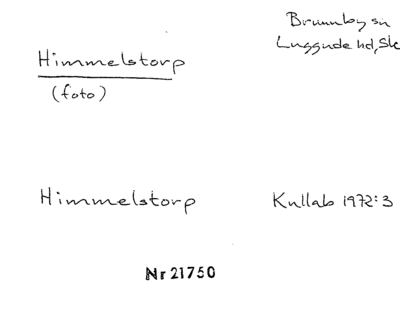 Brunnby sn
Luggude hd, Sk
Himmelstorp
(foto)
Himmelstorp
Kullab 1972:3
Nr 21750